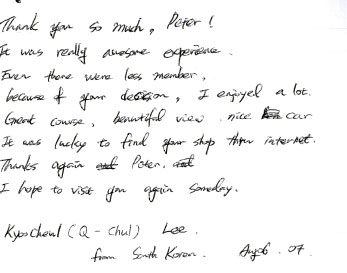 Thank you so much, Peter!
It was really awesome experience.
Even there were less member,
because of your decision, I enjoyed a lot.
Great course, beautiful view. nice car
It was lucky to find your shop thru internet.
Thanks again Peter.
I hope to visit you again someday.
KyooCheul (Q - Chul) Lee.
from South Korea. Aug 6. 07.